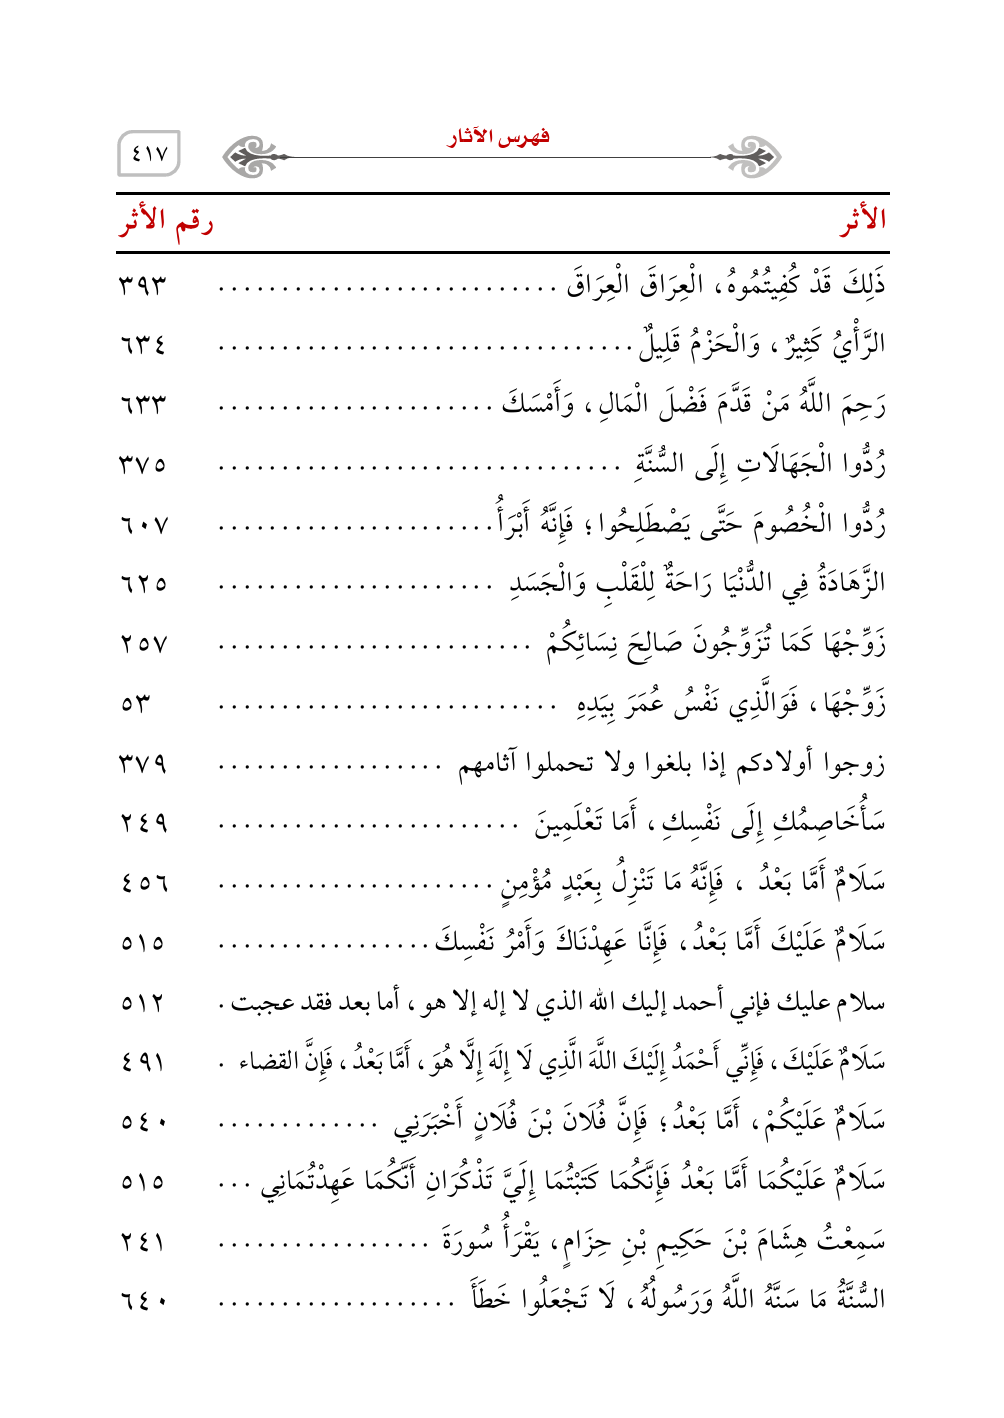 فهرس الآثار
٤١٧
الأثر رقم الأثر
ذَلِكَ قَدْ كُفِيتُمُوهُ، الْعِرَاقَ الْعِرَاقَ ........................... ٣٩٣
الرَّأْيُ كَثِيرٌ، وَالْحَزْمُ قَلِيلٌ ................................. ٦٣٤
رَحِمَ اللَّهُ مَنْ قَدَّمَ فَضْلَ الْمَالِ، وَأَمْسَكَ ...................... ٦٣٣
رُدُّوا الْجَهَالَاتِ إِلَى السُّنَّةِ ................................ ٣٧٥
رُدُّوا الْخُصُومَ حَتَّى يَصْطَلِحُوا؛ فَإِنَّهُ أَبْرَأُ ...................... ٦٠٧
الزَّهَادَةُ فِي الدُّنْيَا رَاحَةٌ لِلْقَلْبِ وَالْجَسَدِ ...................... ٦٢٥
زَوِّجْهَا كَمَا تُزَوِّجُونَ صَالِحَ نِسَائِكُمْ ......................... ٢٥٧
زَوِّجْهَا، فَوَالَّذِي نَفْسُ عُمَرَ بِيَدِهِ ........................... ٥٣
زوجوا أولادكم إذا بلغوا ولا تحملوا آثامهم .................. ٣٧٩
سَأُخَاصِمُكِ إِلَى نَفْسِكِ، أَمَا تَعْلَمِينَ ........................ ٢٤٩
سَلَامٌ أَمَّا بَعْدُ ، فَإِنَّهُ مَا تَنْزِلُ بِعَبْدٍ مُؤْمِنٍ ...................... ٤٥٦
سَلَامٌ عَلَيْكَ أَمَّا بَعْدُ، فَإِنَّا عَهِدْنَاكَ وَأَمْرُ نَفْسِكَ ................. ٥١٥
سلام عليك فإني أحمد إليك الله الذي لا إله إلا هو، أما بعد فقد عجبت . ٥١٢
سَلَامٌ عَلَيْكَ، فَإِنِّي أَحْمَدُ إِلَيْكَ اللَّهَ الَّذِي لَا إِلَهَ إِلَّا هُوَ، أَمَّا بَعْدُ، فَإِنَّ القضاء . ٤٩١
سَلَامٌ عَلَيْكُمْ، أَمَّا بَعْدُ؛ فَإِنَّ فُلَانَ بْنَ فُلَانٍ أَخْبَرَنِي ............. ٥٤٠
سَلَامٌ عَلَيْكُمَا أَمَّا بَعْدُ فَإِنَّكُمَا كَتَبْتُمَا إِلَيَّ تَذْكُرَانِ أَنَّكُمَا عَهِدْتُمَانِي ... ٥١٥
سَمِعْتُ هِشَامَ بْنَ حَكِيمِ بْنِ حِزَامٍ، يَقْرَأُ سُورَةَ ................. ٢٤١
السُّنَّةُ مَا سَنَّهُ اللَّهُ وَرَسُولُهُ، لَا تَجْعَلُوا خَطَأَ ................... ٦٤٠